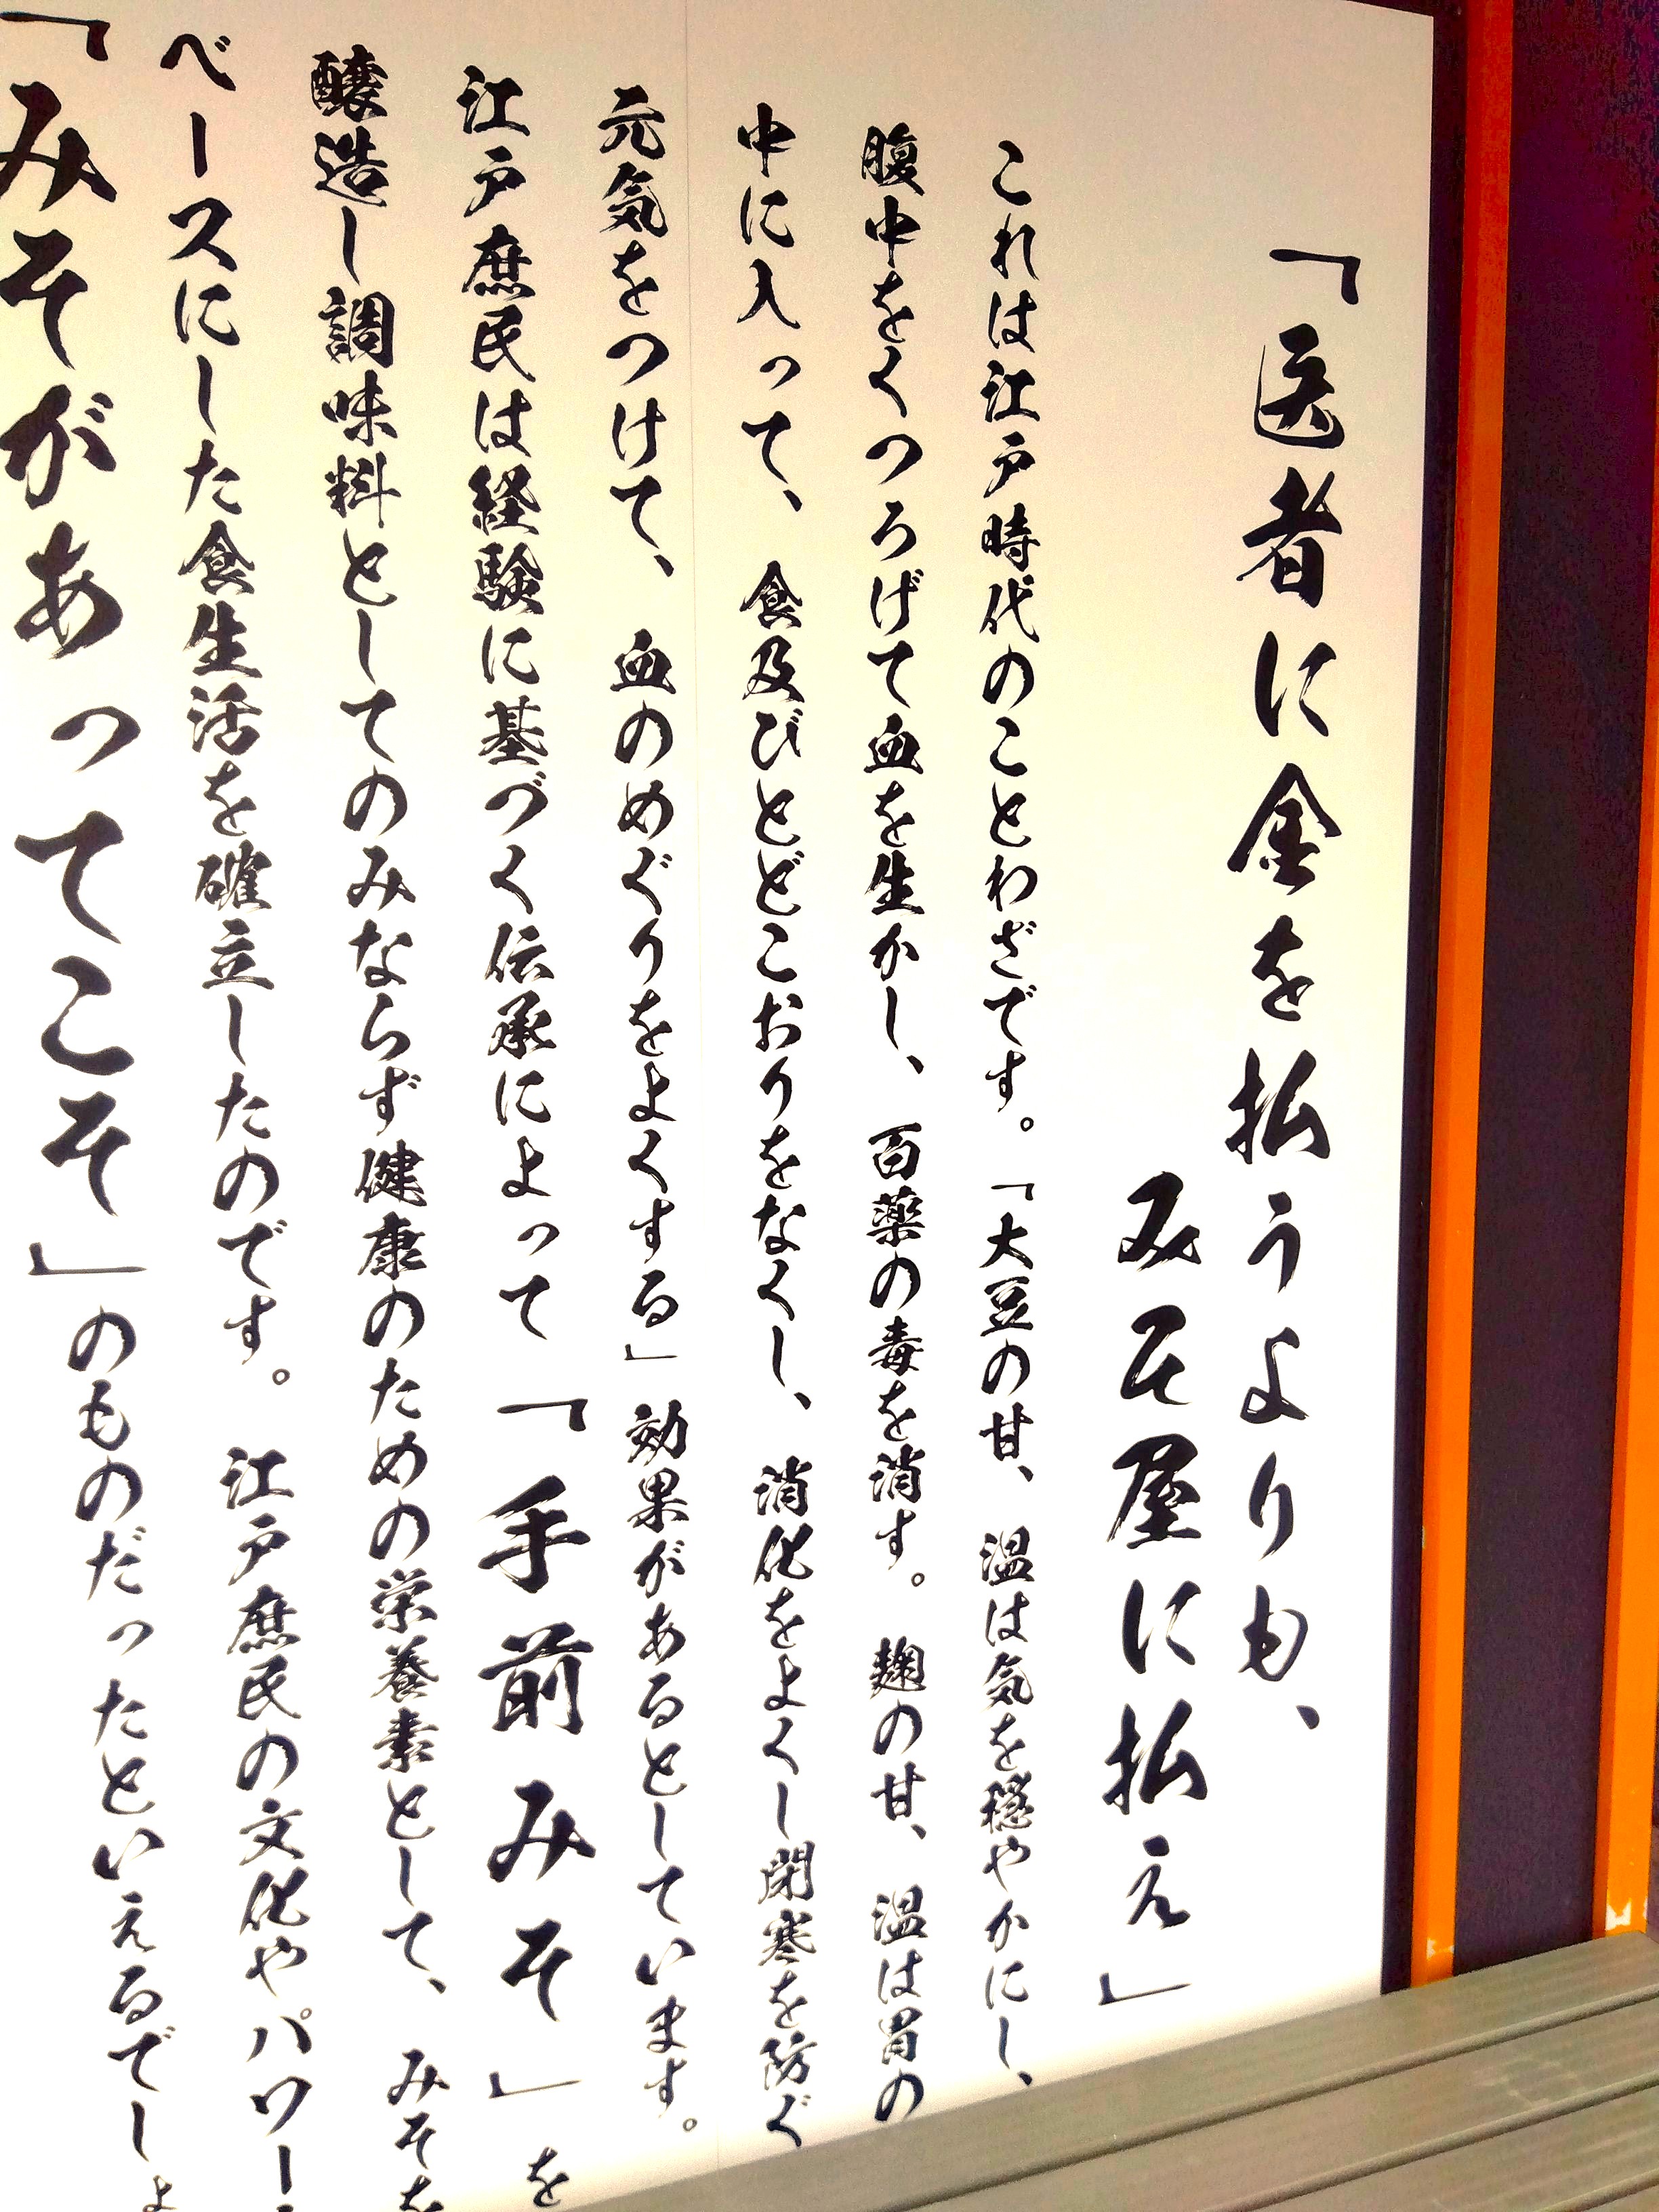 「医者に金を払うよりも、
みそ屋に払え」
これは江戸時代のことわざです。「大豆の甘、温は気を穏やかにし、
腹中をくつろげて血を生かし、百薬の毒を消す。麹の甘、温は胃の
中に入って、食及びとどこおりをなくし、消化をよくし閉塞を防ぐ
元気をつけて、血のめぐりをよくする」効果があるとしています。
江戸庶民は経験に基づく伝承によって「手前みそ」を
醸造し調味料としてのみならず健康のための栄養素として、みそを
ベースにした食生活を確立したのです。江戸庶民の文化やパワー
「みそがあってこそ」のものだったといえるでしょ